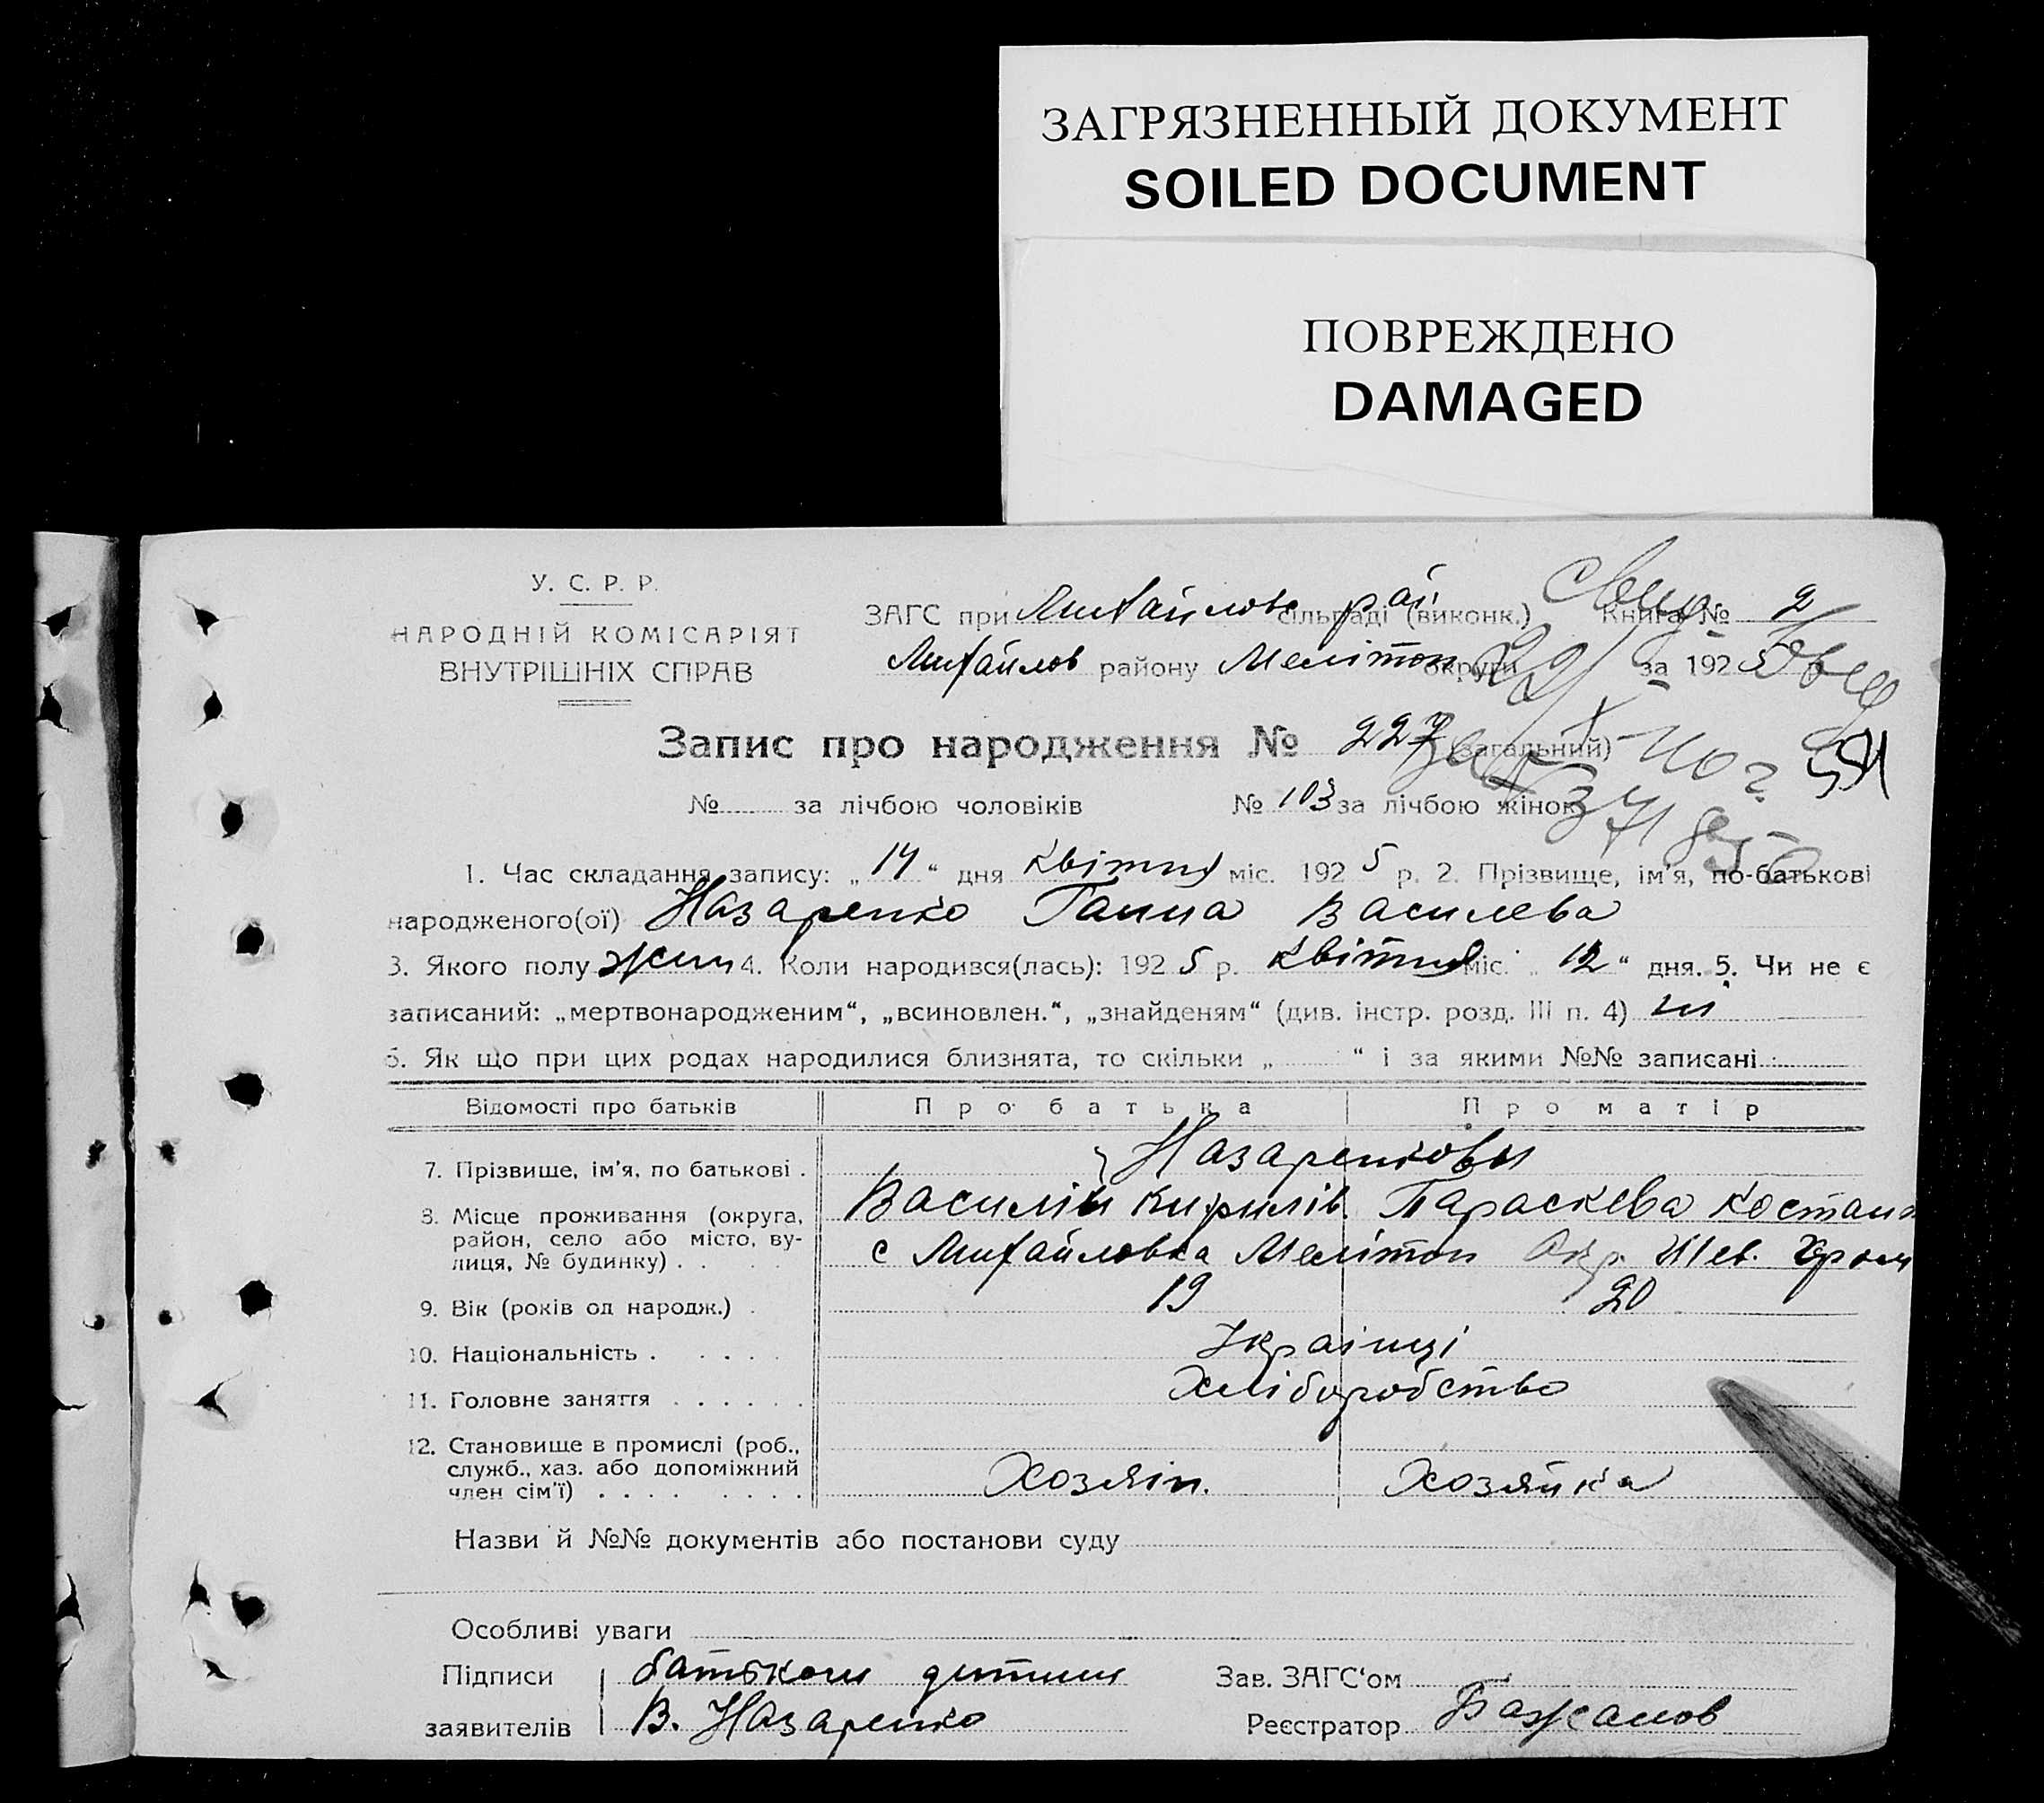 ЗАГРЯЗНЕННЫЙ ДОКУМЕНТ
SOILED DOCUMENT
ПОВРЕЖДЕНО
DAMAGED
У. С. Р. Р.
НАРОДНІЙ КОМІСАРІЯТ
ВНУТРІШНІХ СПРАВ
ЗАГС при Михайлов сільраді (виконк.) Книга № 2
Михайлов району Мелітоп округи за 1925
Запис про народження № 227 (загальний)
№ за лічбою чоловіків № 103 за лічбою жінок
1. Час складання запису: „14“ дня квітня міс. 1925 р. 2. Прізвище, ім'я, по-батькові
народженого(ої) Назаренко Ганна Василева
3. Якого полу жин 4. Коли народився(лась): 1925 р. квітня міс. „12“ дня. 5. Чи не є
записаний: „мертвонародженим“, „всиновлен.“, „знайденям“ (див. інстр. розд. III п. 4) ні
6. Як що при цих родах народилися близнята, то скільки „ “ і за якими №№ записані
Відомості про батьків Про батька Про матір
7. Прізвище, ім'я, по батькові . Назаренкови
Василій Кирилів. Параскева Костант
8. Місце проживання (округа, район, село або місто, вулиця, № будинку) . . с Михайловка Мелітоп Окр. Шев. Гром
9. Вік (років од народж.) . 19 20
10. Національність . . . . . Українці
11. Головне заняття . . . . . . Хліборобство
12. Становище в промислі (роб., служб., хаз. або допоміжний член сім'ї) . . . . Хозяін. Хозяйка
Назви й №№ документів або постанови суду
Особливі уваги
Підписи батьком дитини Зав. ЗАГС'ом
заявителів В. Назаренко Реєстратор Бажанов